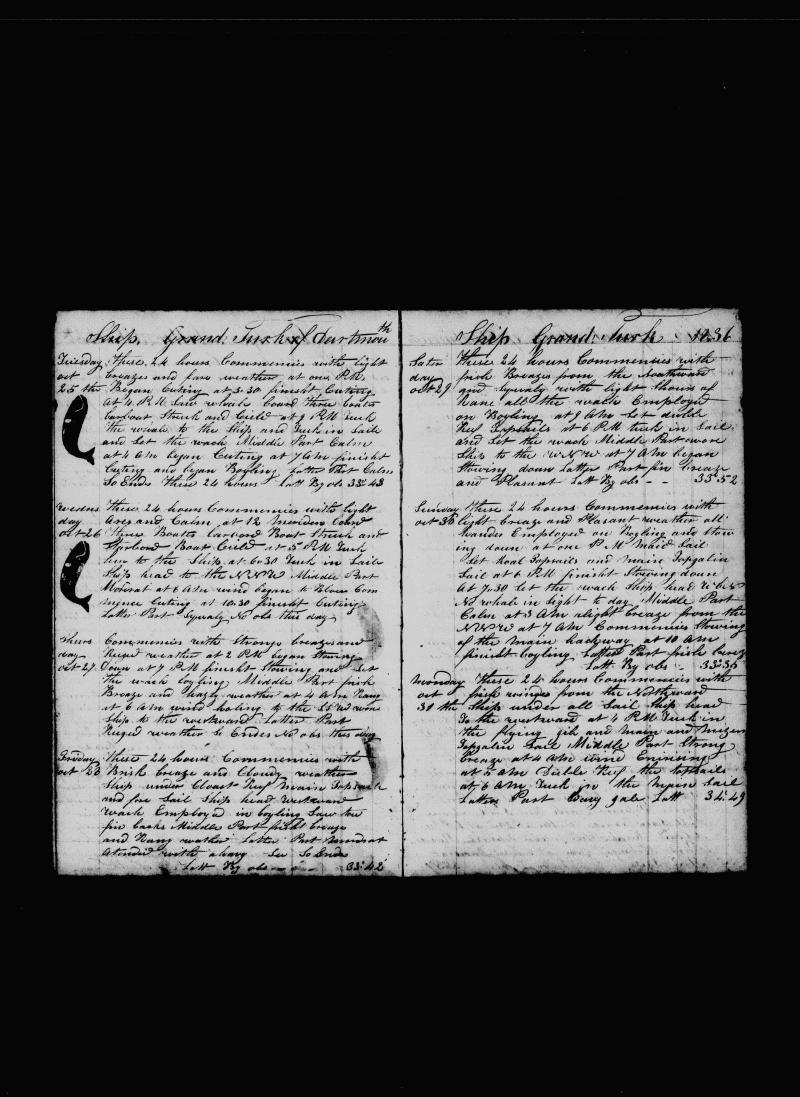 Ship Grand Turk of Dartmouth
Tuesday These 24 hours Commencies with light
oct breazes and fare weather at one P.M.
25 th Began Cuting at 3.30 finisht Cuting
At 4 P.M. Saw whals Lowrd three Boats
Larboat Struck and Cild at 9 P.M. Tuck
the whale to the Ship and Tuck in Sail
and Let the wach Middle Part Calm
at 6 Am began Cuting at 7 Am finisht
Cuting and began Boyling Latter Part Calm
So Ends These 24 hours Latt By obs 33:43
wedens These 24 hours Commencies with light
day Ares and Calm at 12 Meridien Lowrd
oct 26 three Boats Larbord Boat Struck and
Boat Cild at 5 P.M. Tuck
him to the Ship at 6.30 Tuck in Sail
Ship head to the N.N.W Middle Part
Moderat at 6 Am wind began to Blow Com
Cuting at 10.30 finisht Cuting
Latter Part Squaly No obs this day
Thurs Commencies with Strong breazes and
day Ruged weather at 2 P.M began Stowing
oct 27 down at 7 P.M finisht Stowing and Set
the wach boyling Middle Part frish
Breaze and hazy weather at 4 Am Rany
at 6 Am wind haling to the SSW wore
Ship to the westward Latter Part
Ruged weather So Endes No obs this day
Friday These 24 hours Commencies with
oct 28 Brisk breaze and Cloudy weather
Ship under Cloast Reef Main Topsail
and fore Sail Ship head Westward
wach Employed in boyling Saw two
fin backs Middle Part frisht breaze
and Rany weather Latter Part
Atended with a heavy Sea So Ends
Latt By obs - - - 33:42
Ship Grand Turk 1836
Satur These 24 hours Commencies with
day frish Breazes from the Northward
oct 29 and Squaly with light Showrs of
Rane all the wach Employed
on Boyling at 9 Am Set duble
Reef Topsails at 6 P.M tuck in Sail
and Let the wach Middle Part wore
Ship to the W.N.W at 7 Am began
Stowing down Latter Part fin breaze
and Plasant Latt By obs - - 33:52
Sunday These 24 hours Commencies with
oct 30 light breaze and Plasant weather all
handes Employed on Boyling and Stow
ing down at one P.M Maid Sail
Set hoal Topsails and Main Topgalin
Sail at 6 P.M finisht Stowing down
At 7.30 Let the wach Ship head W b N
No whale in Sight to day Middle Part
Calm at 3 Am alight breaze from the
N.N.W at 7 Am Commencies Stowing
of the Main hachway at 10 Am
finisht boyling Latter Part frish breaze
Latt By obs - 33:35
Monday These 24 hours Commencies with
oct frish winds from the Northward
31 th Ship under all Sail Ship head
To the westward at 4 P.M Tuck in
the flying gib and Main and Mizen
Topgalin Sail Middle Part Strong
breaze at 4 Am wind
at 5 Am Duble Reef the topsails
at 6 Am Tuck in the Mizen Sail
Latter Part gale Latt 34:49